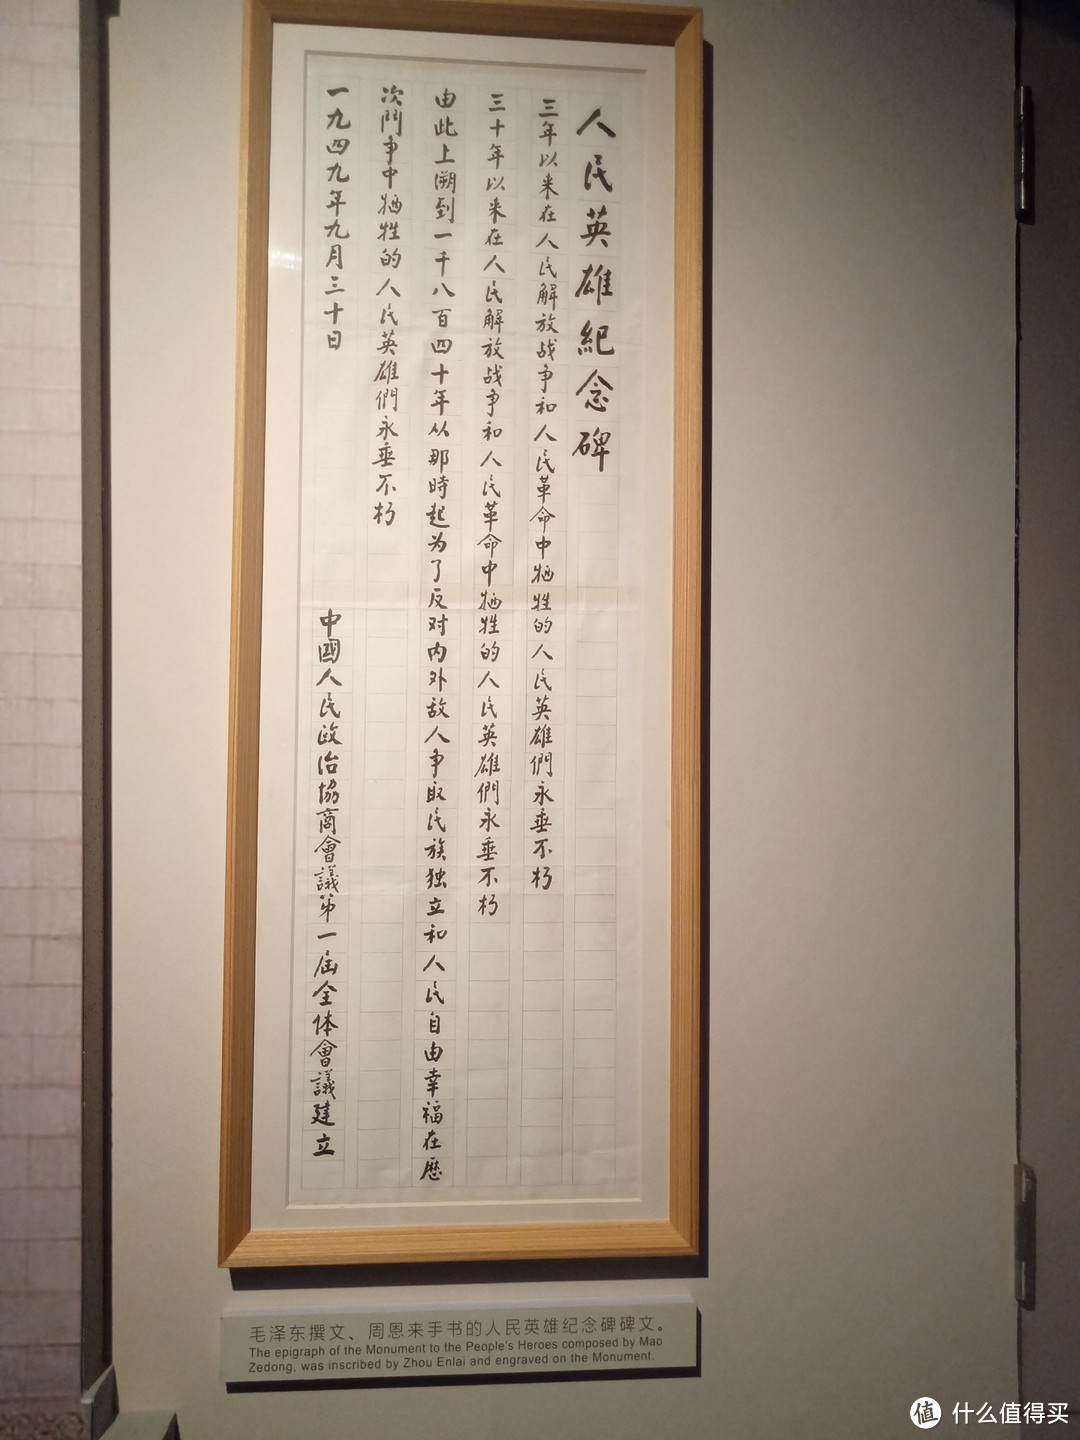 人民英雄紀念碑
三年以来在人民解放战争和人民革命中牺牲的人民英雄們永垂不朽
三十年以来在人民解放战争和人民革命中牺牲的人民英雄們永垂不朽
由此上溯到一千八百四十年从那時起为了反对内外敌人争取民族独立和人民自由幸福在歷
次鬥争中牺牲的人民英雄們永垂不朽
一九四九年九月三十日
中國人民政治協商會議第一届全体會議建立
毛泽东撰文、周恩来手书的人民英雄纪念碑碑文。
The epigraph of the Monument to the People's Heroes composed by Mao
Zedong, was inscribed by Zhou Enlai and engraved on the Monument.
值 什么值得买